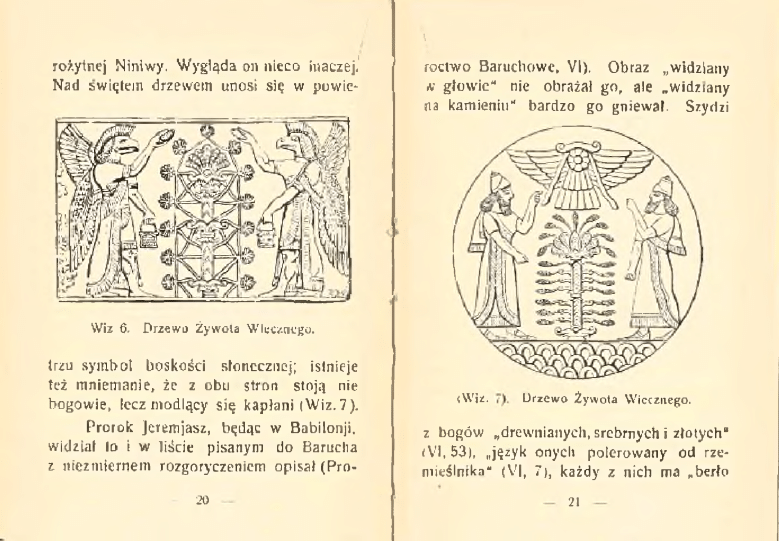 rożytnej Niniwy. Wygląda on nieco inaczej.
Nad świętem drzewem unosi się w powie-
Wiz 6. Drzewo Żywota Wiecznego.
trzu symbol boskości słonecznej; istnieje
też mniemanie, że z obu stron stoją nie
bogowie, lecz modlący się kapłani (Wiz. 7).
Prorok Jeremjasz, będąc w Babilonji,
widział to i w liście pisanym do Barucha
z niezmiernem rozgoryczeniem opisał (Pro-
— 20 —
roctwo Baruchowe, VI). Obraz „widziany
w głowie“ nie obrażał go, ale „widziany
na kamieniu“ bardzo go gniewał. Szydzi
(Wiz. 7). Drzewo Żywota Wiecznego.
z bogów „drewnianych, srebrnych i złotych“
(VI, 53), „język onych polerowany od rze-
mieślnika“ (VI, 7), każdy z nich ma „berło
— 21 —